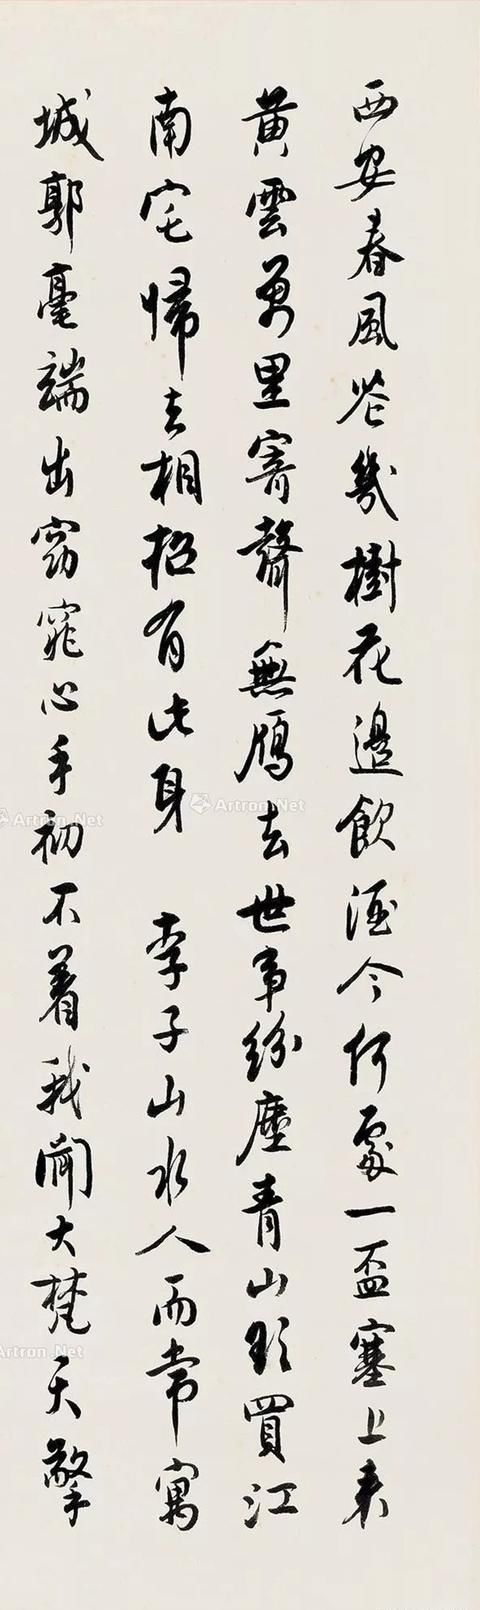 西安春風花幾樹花邊飲酒今何處一盃塞上来
黄雲萬里寄聲無鴈去世事紛塵青山須買江
南宅歸去相招有此身 李子山水人而常寓
城郭毫端出窈窕心手初不着我聞大梵天擎
Artron.Net
Artron.Net
Artron.Net